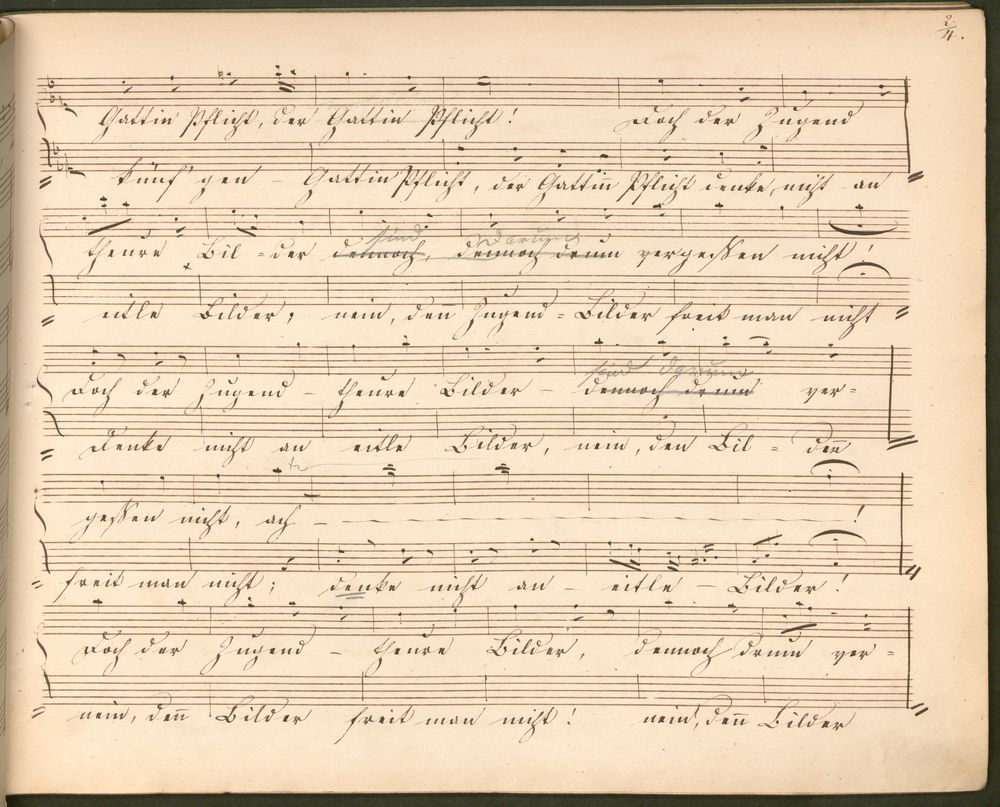 2/4.
Gattin Pflicht, der Gattin Pflicht! Doch der Jugend
künf'gen - Gattin Pflicht, der Gattin Pflicht denke, nicht an
sind Darum
theure Bil = der dennoch, dennoch drum vergessen nicht!
eitle Bilder, nein, den̅ Jugend = Bilder freit man nicht
sind darum
Doch der Jugend - theure Bilder - dennoch drum ver=
Denke nicht an eitle Bilder, nein, den Bil = der̅
tr
gessen nicht, ach - !
freit man nicht; denke nicht an - eitle - Bilder!
Doch der Jugend - theure Bilder, dennoch drum ver=
nein, den̅ Bilder freit man nicht! nein, den̅ Bilder